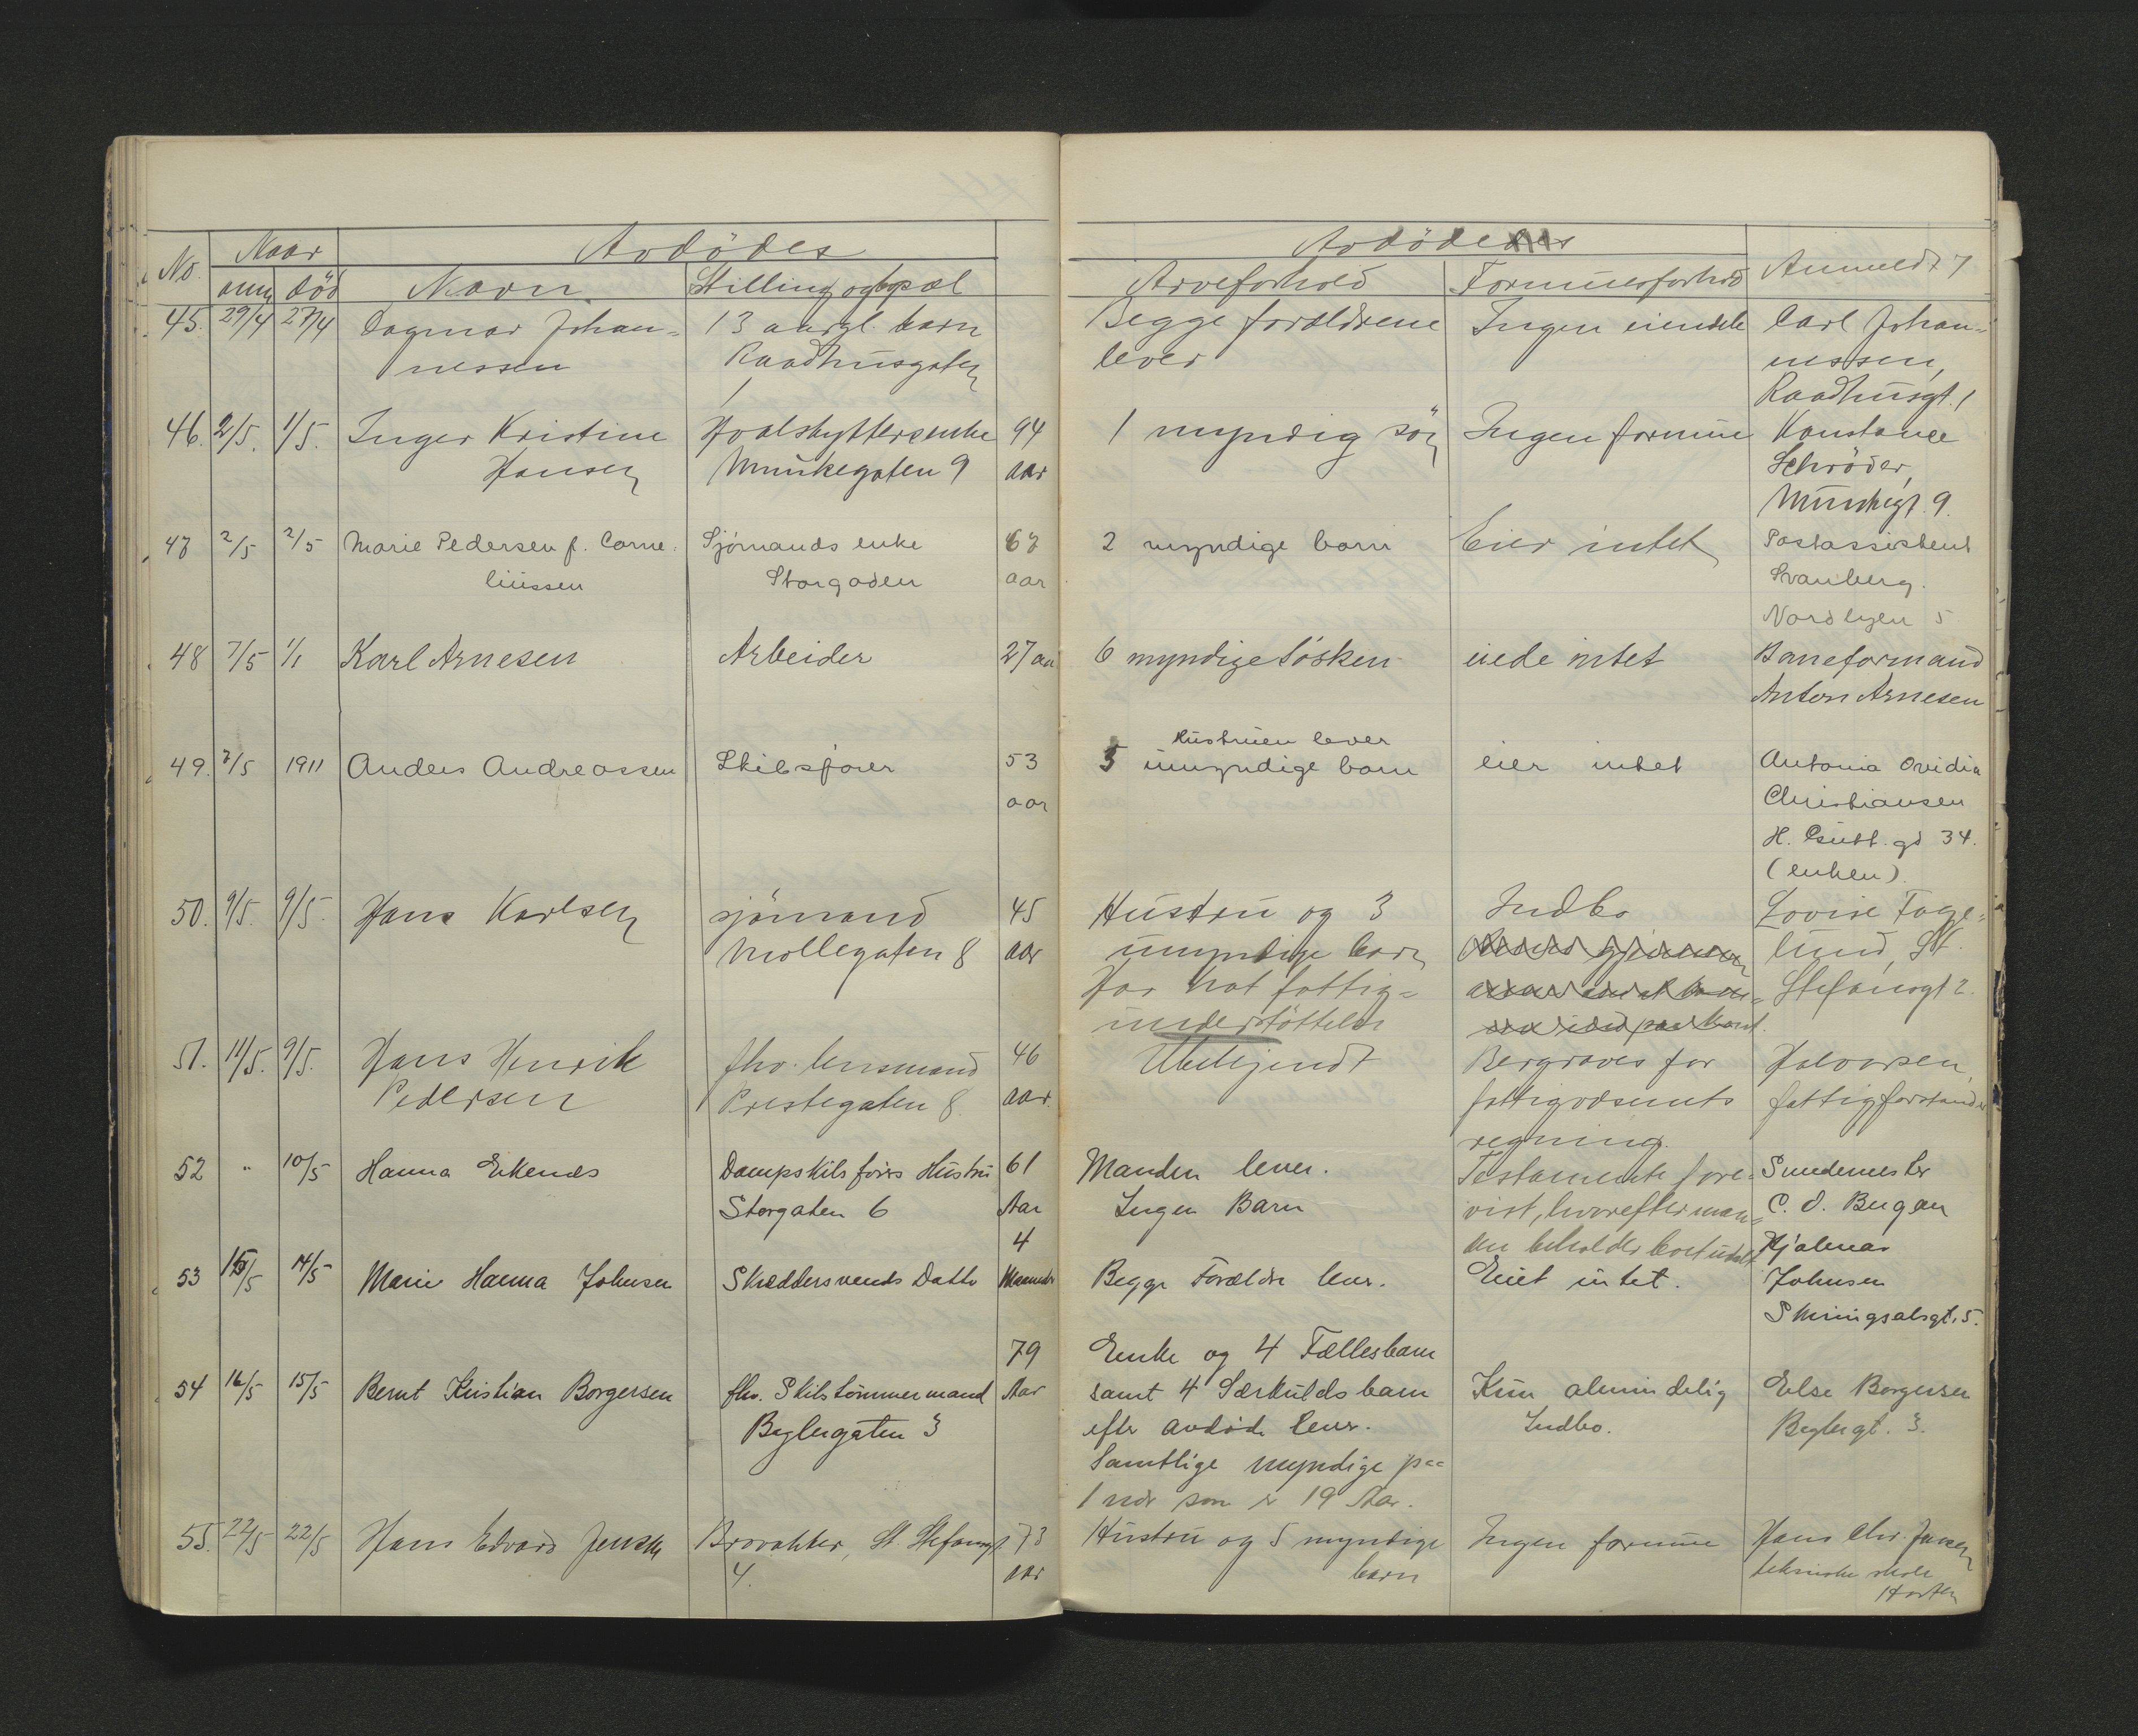 Avdödes
Avdödes
No. Naar
anm. död Navn Stilling og bopæl Arveforhold Formuesforhold Anmeldt
45. 29/4 27/4 Dagmar Johan= 13 aargl. barn Begge forældrene Ingen eiendele Carl Johan=
nessen Raadhusgaten lever nessen,
Raadhusgt. 1
46. 2/5. 1/5. Inger Kristine Hvalskytterenke 94 1 myndig søn Ingen formue Konstance
Hansen Munkegaten 9 aar Schröder,
Munkegt. 9.
47 2/5 2/5 Marie Pedersen f. Corne= Sjømands enke 67 2 myndige barn Eier intet Postassistent
liussen Storgaden aar Svanberg.
Nordbyen 5
48 7/5 1/1 Karl Arnesen Arbeider 27 aar 6 myndige søsken eiede intet Baneformand
Anton Arnesen
Hustruen lever
49. 7/5 1911 Anders Andreassen Skibsfører 53 5 umyndige barn eier intet Antonia Ovidia
aar Christiansen
gd 34.
(enken).
50. 9/5. 9/5. Hans Karlsen sjömand 45 Hustru og 3 Indbo Lovise Fage=
Møllegaten 8 aar umyndige barn lund, St.
Har hat fattig= Stefansgt 2.
understöttelse
51. 11/5. 9/5. Hans Henrik fhv. lensmand 46 Ubekjendt Bergraves for Halvorsen,
Pedersen Prestegaten 8 aar. fattigvæsenets fattigforstander
regning.
52 " 10/5 Hanna Erkends Dampskibsførers Hustru 61 Manden lever. Testamente fore= Smedemester
Storgaten 6 Aar Ingen Barn vist, hvorefter man= C. O. Bugan
4 den beholder boet udelt Hjalmar
53 15/5 14/5 Marie Hanna Johnsen Skræddersvends Datter Maaneder Begge Forældre lever. Eiet intet. Johnsen
Skiringsalsgt. 5.
79 Enke og 4 Fællesbarn
54 16/5 15/5 Bernt Kristian Borgersen fhv. Skibstømmermand Aar samt 4 Særkuldsbarn Kun almindelig Else Borgersen
Byglergaten 3 efter avdøde lever. Indbo. Byglergt. 3.
Samtlige myndige paa
1 nær som er 19 Aar.
55. 22/5 22/5 Hans Edvard Jensen Brovakter, St. Stefansgt 73 Hustru og 5 myndige Ingen formue Hans Chr. Jensen
4. aar barn tekniske skole
Horten